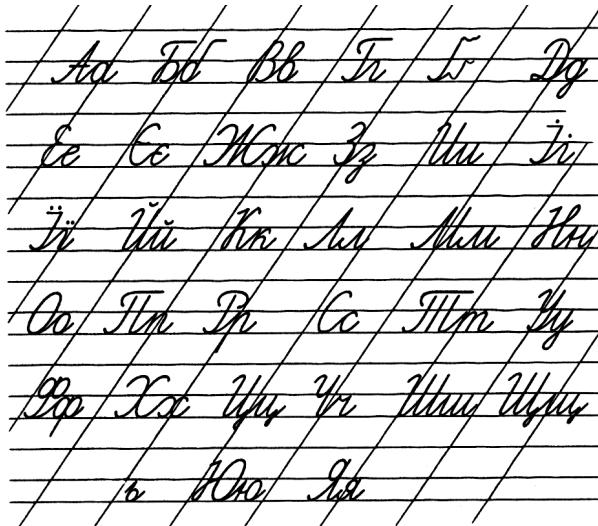 Аа Бб Вв Гг Ґґ Дд
Ее Єє Жж Зз Ии Іі
Її Йй Кк Лл Мм Нн
Оо Пп Рр Сс Тт Уу
Фф Хх Цц Чч Шш Щщ
ь Юю Яя